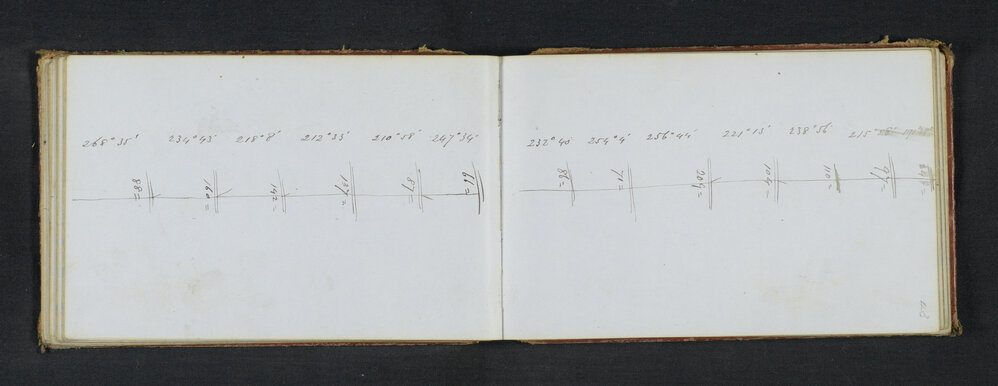 268°35' 234°43' 218°8' 212°33' 210°58' 247°34'
88= 160= 142= 137= 87= 61=
232°40' 254°4' 256°44' 221°13' 238°56' 215°
88= 71= 204= 104= 110= 97=